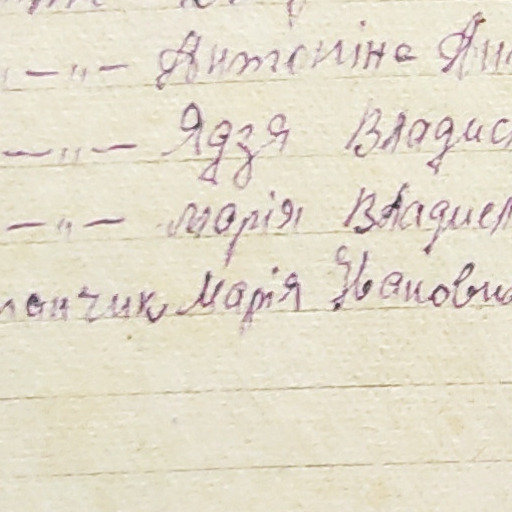 — " — Антоніна Ан
— " — Ядзя Владис
— " — Марія Владисл
анчик Марія Івановна